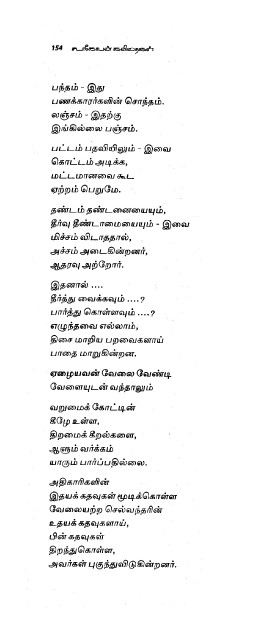 154 சுரீகையன் கவிதைகள்
பந்தம் - இது
பணக்காரர்களின் சொந்தம்.
லஞ்சம் - இதற்கு
இங்கில்லை பஞ்சம்.
பட்டம் பதவியிலும் - இவை
கொட்டம் அடிக்க,
மட்டமானவை கூட
ஏற்றம் பெறுமே.
தண்டம் தண்டனையையும்,
தீர்வு தீண்டாமையையும் - இவை
மிச்சம் விடாததால்,
அச்சம் அடைகின்றனர்,
ஆதரவு அற்றோர்.
இதனால் ....
தீர்த்து வைக்கவும் ....?
பார்த்து கொள்ளவும் ....?
எழுந்தவை எல்லாம்,
திசை மாறிய பறவைகளாய்
பாதை மாறுகின்றன.
ஏழையவன் வேலை வேண்டி
வேளையுடன் வந்தாலும்
வறுமைக் கோட்டின்
கீழே உள்ள,
திறமைக் கீறல்களை,
ஆளும் வர்க்கம்
யாரும் பார்ப்பதில்லை.
அதிகாரிகளின்
இதயக் கதவுகள் மூடிக்கொள்ள
வேலையற்ற செல்வந்தரின்
உதயக் கதவுகளாய்,
பின் கதவுகள்
திறந்துகொள்ள,
அவர்கள் புகுந்துவிடுகின்றனர்.